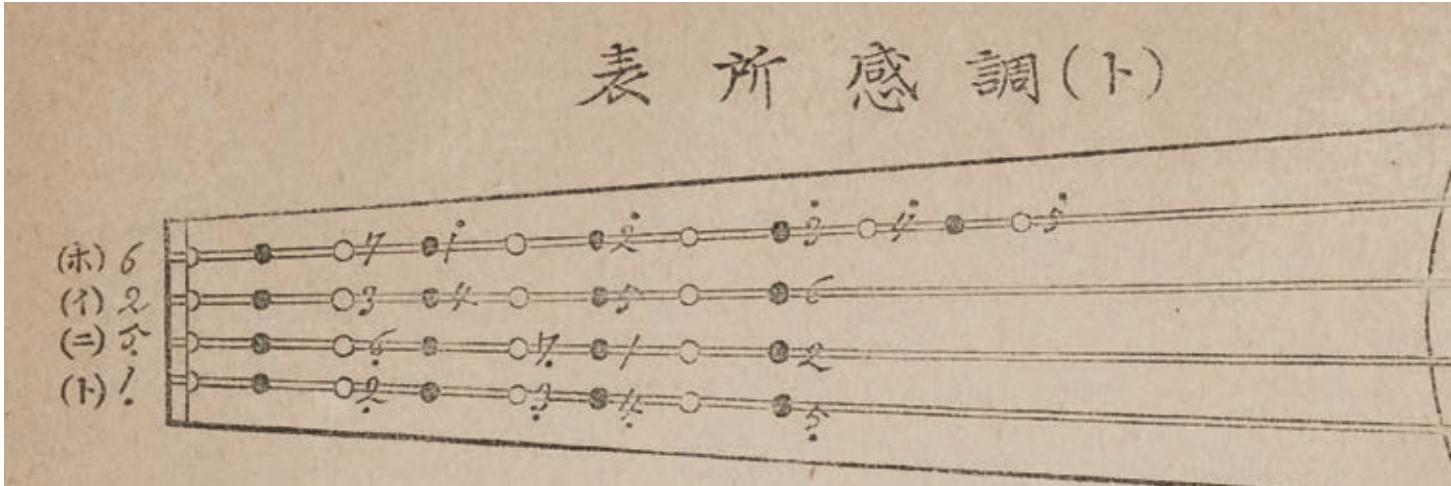 (ト)調感所表
(ホ) 6 7 1̇ 2̇ 3̇ 4̇ 5̇
(イ) 2 3 4 5 6
(ニ) 5̣ 6̣ 7̣ 1 2
(ト) 1̣ 2̣ 3̣ 4̣ 5̣